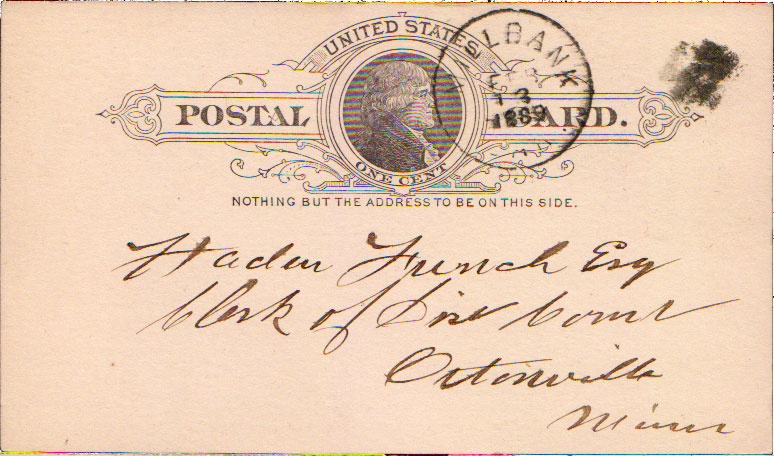 UNITED STATES
POSTAL CARD.
ONE CENT
MILBANK
FEB
13
1889
NOTHING BUT THE ADDRESS TO BE ON THIS SIDE.
French Esq
Clerk of Dist Court
Ortonville
Minn